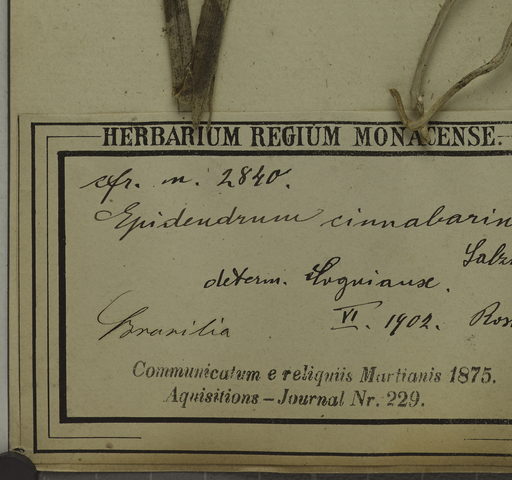 HERBARIUM REGIUM MONACENSE.
cfr. n. 2840.
Epidendrum cinnabarin
Salz
determ. Cogniaux.
Brasilia VI. 1902. Ros
Communicatum e reliquiis Martianis 1875.
Aquisitions-Journal Nr. 229.